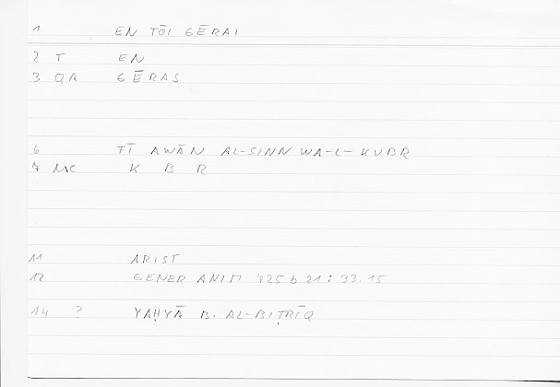 1 EN TŌI GĒRAI
2 T EN
3 QA GĒRAS
6 FĪ AWĀN AL-SINN WA-L-KUBR
7 MC K B R
11 ARIST
12 GENER ANIM 725 b 21 : 33.15
14 ? YAḤYĀ B. AL-BIṬRĪQ